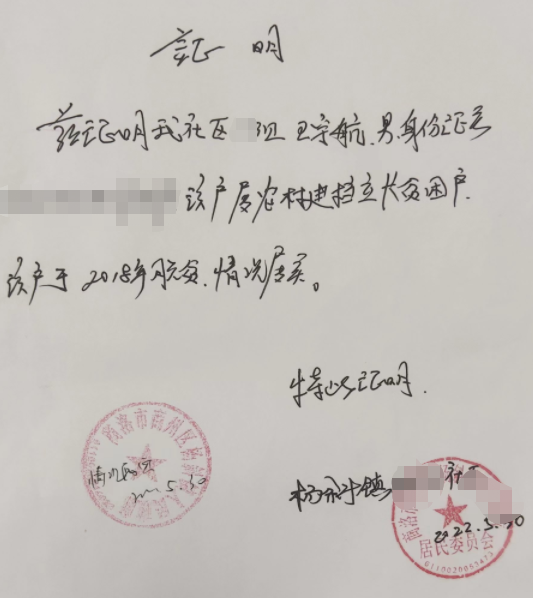 证明
兹证明我社区 组 王宇航,男,身份证号
该户属农村建档立卡贫困户.
该户于2018年脱贫,情况属实。
特此证明.
商洛市商州区 人民政府
情况属实
5.30
镇
商洛
居民委员会
2022.5.30